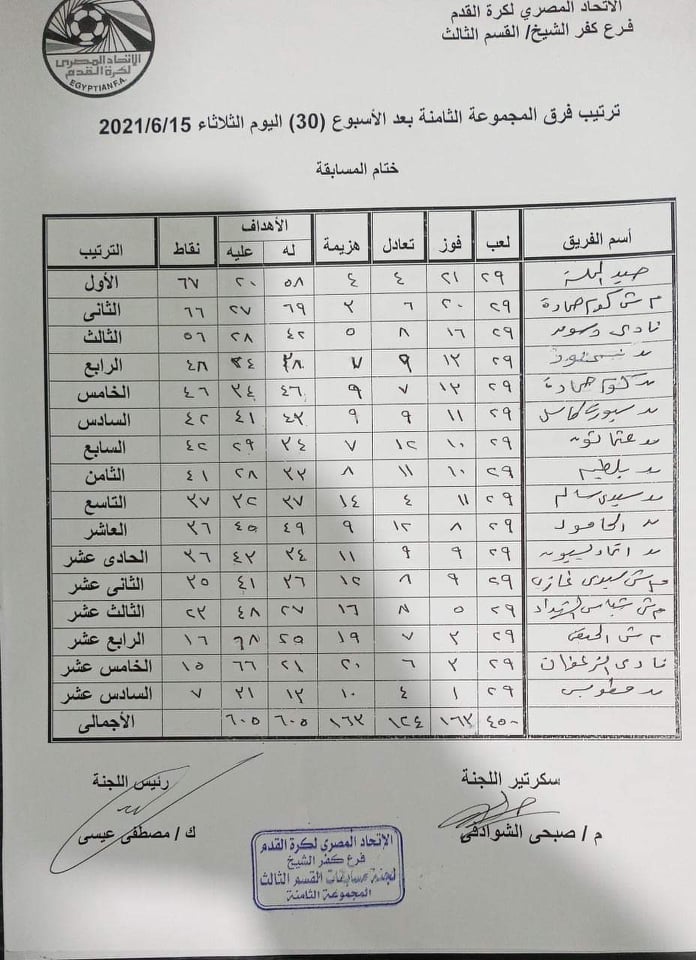 الإتحاد المصري لكرة القدم
فرع كفر الشيخ/ القسم الثالث
الإتحاد المصرى
لكرة القدم
EGYPTIAN F.A.
ترتيب فرق المجموعة الثامنة بعد الأسبوع (30) اليوم الثلاثاء 2021/6/15
ختام المسابقة
أسم الفريق لعب فوز تعادل هزيمة الأهداف له عليه نقاط الترتيب
صيد المحلة ٢٩ ٢١ ٤ ٤ ٥٨ ٢٠ ٦٧ الأول
م ش كوم حمادة ٢٩ ٢٠ ٦ ٣ ٦٩ ٢٧ ٦٦ الثانى
نادى دسوق ٢٩ ١٦ ٨ ٥ ٤٢ ٢٨ ٥٦ الثالث
٢٩ ١٣ ٩ ٧ ٣٨ ٢٤ ٤٨ الرابع
كوم حمادة ٢٩ ١٣ ٧ ٩ ٤٦ ٣٤ ٤٦ الخامس
٢٩ ١١ ٩ ٩ ٤٣ ٤١ ٤٢ السادس
٢٩ ١٠ ١٢ ٧ ٣٤ ٢٩ ٤٢ السابع
بلطيم ٢٩ ١٠ ١١ ٨ ٣٣ ٢٨ ٤١ الثامن
سيدى سالم ٢٩ ١١ ٤ ١٤ ٣٧ ٣٢ ٣٧ التاسع
الحامول ٢٩ ٨ ١٢ ٩ ٤٩ ٤٥ ٣٦ العاشر
اتحاد بسيون ٢٩ ٩ ٩ ١١ ٣٤ ٤٣ ٣٦ الحادى عشر
م ش سيدى غازى ٢٩ ٩ ٨ ١٢ ٣٦ ٤١ ٣٥ الثانى عشر
م ش شباس الشهداء ٢٩ ٥ ٨ ١٦ ٢٧ ٤٨ ٢٣ الثالث عشر
م ش ٢٩ ٣ ٧ ١٩ ٢٥ ٦٨ ١٦ الرابع عشر
نادى الزعفران ٢٩ ٣ ٦ ٢٠ ٢١ ٦٦ ١٥ الخامس عشر
مطوبس ٢٩ ١ ٤ ١٠ ١٣ ٢١ ٧ السادس عشر
٤٥٠ ١٦٣ ١٢٤ ١٦٣ ٦٠٥ ٦٠٥ الأجمالى
سكرتير اللجنة رئيس اللجنة
م / صبحى الشوادفى ك / مصطفى عيسى
الإتحاد المصرى لكرة القدم
فرع كفر الشيخ
لجنة مسابقات القسم الثالث
المجموعة الثامنة